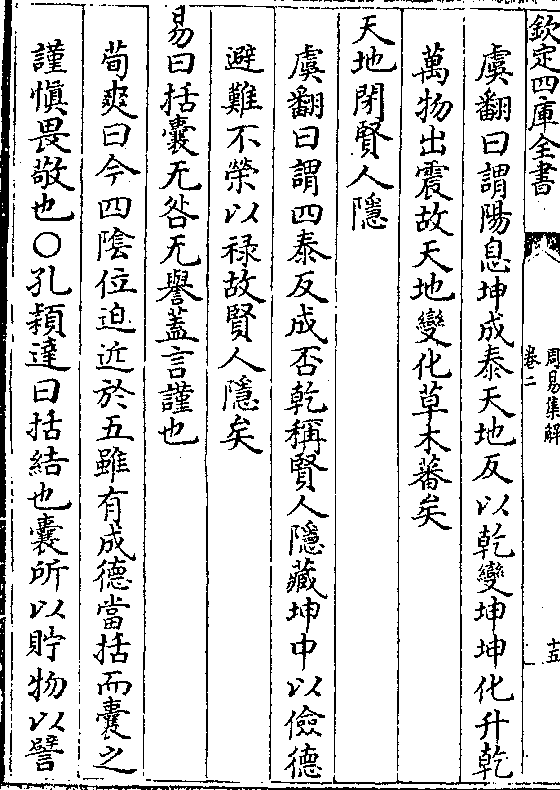 欽定四庫全書
周易集解
卷二
十五
虞翻曰謂陽息坤成泰天地反以乾變坤坤化升乾
萬物出震故天地變化草木蕃矣
天地閉賢人隱
虞翻曰謂四泰反成否乾稱賢人隱藏坤中以儉德
避難不榮以禄故賢人隱矣
易曰括囊无咎无譽蓋言謹也
荀爽曰今四陰位迫近於五雖有成德當括而囊之
謹慎畏敬也○孔穎達曰括結也囊所以貯物以譬